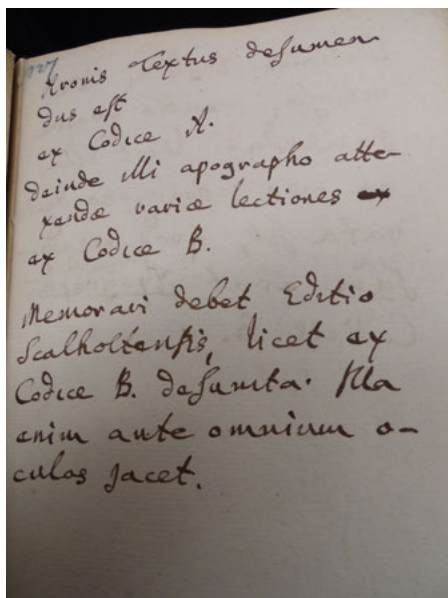 1027
Aronis Textus desumen-
dus est
ex Codice A.
deinde illi apographo atte-
xendæ variæ lectiones ex
ex Codice B.
Memorari debet Editio
Scalholtensis, licet ex
Codice B. desumta. Illa
enim ante omnium o-
culos jacet.